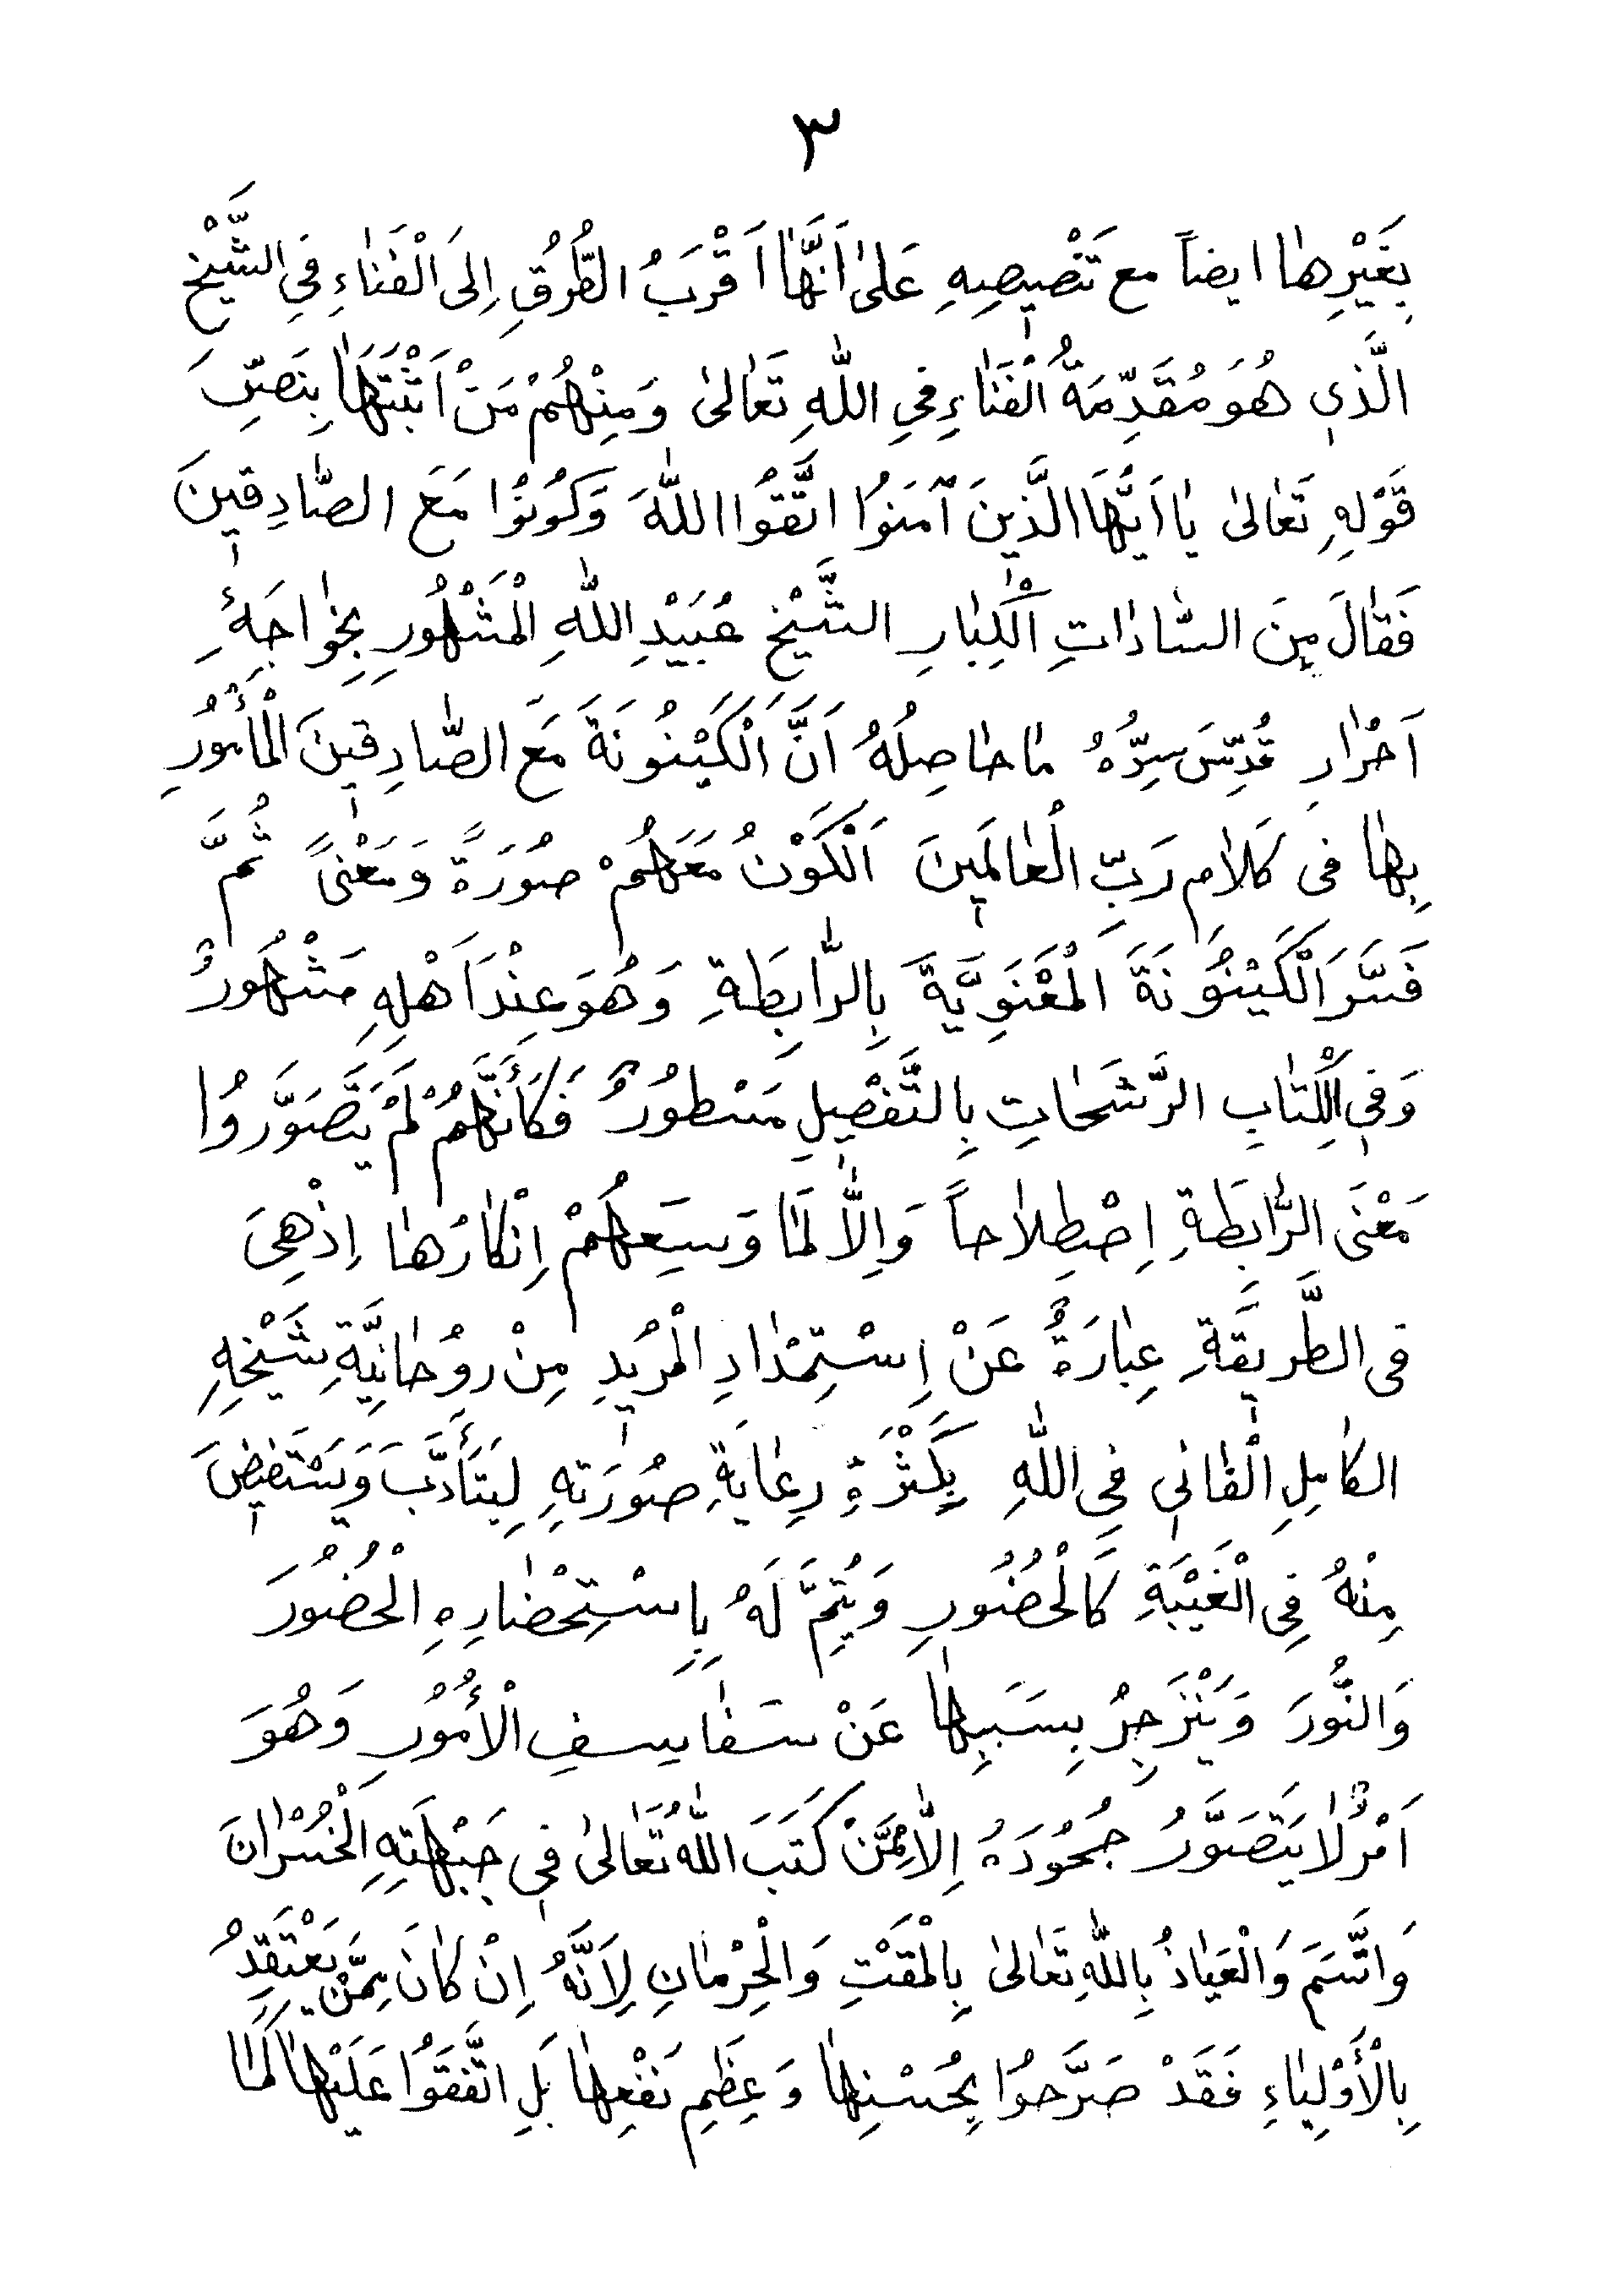 ٣
بِغَيْرِهٰا ايضاً مع تَنْصيصِهِ عَلىٰ اَنَّهٰا اَقْرَبُ الطُّرُقِ اِلىَ الْفَنٰاءِ فِي الشَّيْخِ
الَّذي هُوَ مُقَدِّمَةُ الْفَنٰاءِ فِي اللّٰهِ تَعٰالىٰ وَمِنْهُمْ مَنْ اَثْبَتَهٰا بِنَصِّ
قَوْلِهِ تَعٰالىٰ يٰا اَيُّهَا الَّذينَ آمَنوُا اتَّقُوا اللّٰهَ وَكُونوُا مَعَ الصّٰادِقينَ
فَقٰالَ مِنَ السّٰادٰاتِ الْكِبٰارِ الشَّيْخِ عُبَيْدِ اللّٰهِ الْمَشْهُورِ بِخٰواجَهِٔ
اَحْرٰارِ قُدِّسَ سِرُّهُ مٰا حٰاصِلُهُ اَنَّ الْكَيْنُونَةَ مَعَ الصّٰادِقينَ الْمأْمُورِ
بِهٰا فى كَلٰامِ رَبِّ الْعٰالَمينَ اَلْكَوْنُ مَعَهُمْ صُورَةً وَمَعْنىً ثُمَّ
فَسَّرَ الْكَيْنوُنَةَ الْمَعْنَوِيَّةَ بِالرّٰابِطَةِ وَهُوَ عِنْدَ اَهْلِهِ مَشْهُورٌ
وَفِي الْكِتٰابِ الرَّشَحٰاتِ بِالتَّفْصيلِ مَسْطورٌ فَكَأَنَّهُمْ لَمْ يَتَصَوَّرُوا
مَعْنَى الرّٰابِطَةِ اِصْطِلٰاحاً وَاِلّٰا لَمٰا وَسِعَهُمْ اِنْكٰارُهٰا اِذْ هِيَ
فى الطَّريقَةِ عِبٰارَةٌ عَنْ اِسْتِمْدٰادِ الْمُريدِ مِنْ روُحٰانِيَّةِ شَيْخِهِ
الكٰامِلِ الْفٰاني فِي اللّٰهِ بِكَثْرَةِ رِعٰايَةِ صُورَتِهِ لِيَتَأَدَّبَ وَيَسْتَفيضَ
مِنْهُ فِى الْغَيْبَةِ كَالْحُضُورِ وَيُتِمَّ لَهُ بِاِسْتِحْضٰارِهِ الْحُضُورَ
وَالنُّورَ وَيَنْزَجِرُ بِسَبَبِهٰا عَنْ سَفٰاسِفِ الْأُمُورِ وَهُوَ
اَمْرٌ لٰا يَتَصَوَّرُ جُحُودَهُ اِلّٰا مِمَّنْ كَتَبَ اللّٰهُ تَعٰالىٰ في جَبْهَتِهِ الْخُسْرٰانَ
وَاتَّسَمَ وَالْعَيٰاذُ بِاللّٰهِ تَعٰالىٰ بِالْمَقْتِ وَالْحِرْمٰانِ لِاَنَّهُ اِنْ كٰانَ مِمَّنْ يَعْتَقِدُ
بِالْأَوْلِيٰاءِ فَقَدْ صَرَّحوُا بِحُسْنِهٰا وَعِظَمِ نَفْعِهٰا بَلِ اتَّفَقوُا عَلَيْهٰا لَمٰا